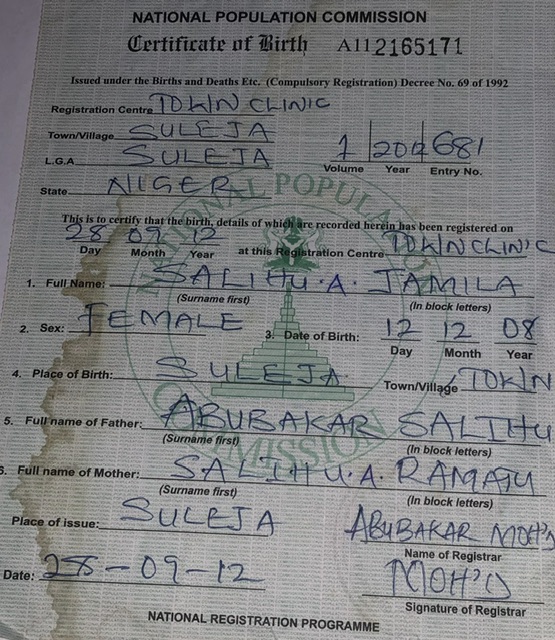 NATIONAL POPULATION COMMISSION
Certificate of Birth A112165171
Issued under the Births and Deaths Etc. (Compulsory Registration) Decree No. 69 of 1992
Registration Centre TOWN CLINIC
Town/Village SULEJA
L.G.A SULEJA 1 2012 681
Volume Year Entry No.
State NIGER
This is to certify that the birth, details of which are recorded herein has been registered on
28 09 12 at this Registration Centre TOWN CLINIC
Day Month Year
1. Full Name: SALIHU. A. JAMILA
(Surname first) (In block letters)
2. Sex: FEMALE 3. Date of Birth: 12 12 08
Day Month Year
4. Place of Birth: SULEJA Town/Village TOWN
5. Full name of Father: ABUBAKAR SALIHU
(Surname first) (In block letters)
6. Full name of Mother: SALIHU. A. RAMATU
(Surname first) (In block letters)
Place of issue: SULEJA ABUBAKAR MOH'D
Name of Registrar
Date: 28-09-12 MOH'D
Signature of Registrar
NATIONAL REGISTRATION PROGRAMME
NATIONAL POPULATION COMMISSION